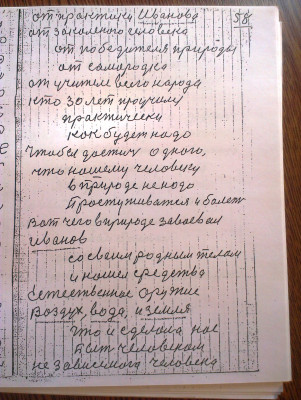 58
от практики Иванова
от закалного человека
от победителя природы
от самородка
от учителя всего народа
кто 30 лет проучал
практически
как будет надо
чтобы достич одного,
что нашему человеку
в природе не надо
простуживатся и болеть
Вот чего в природе завоевал
Иванов
со своим родным телом
и нашел средства
Естественное оружие
воздух, вода, и земля
Это и сделала нас
быт человеком
не зависимого человека